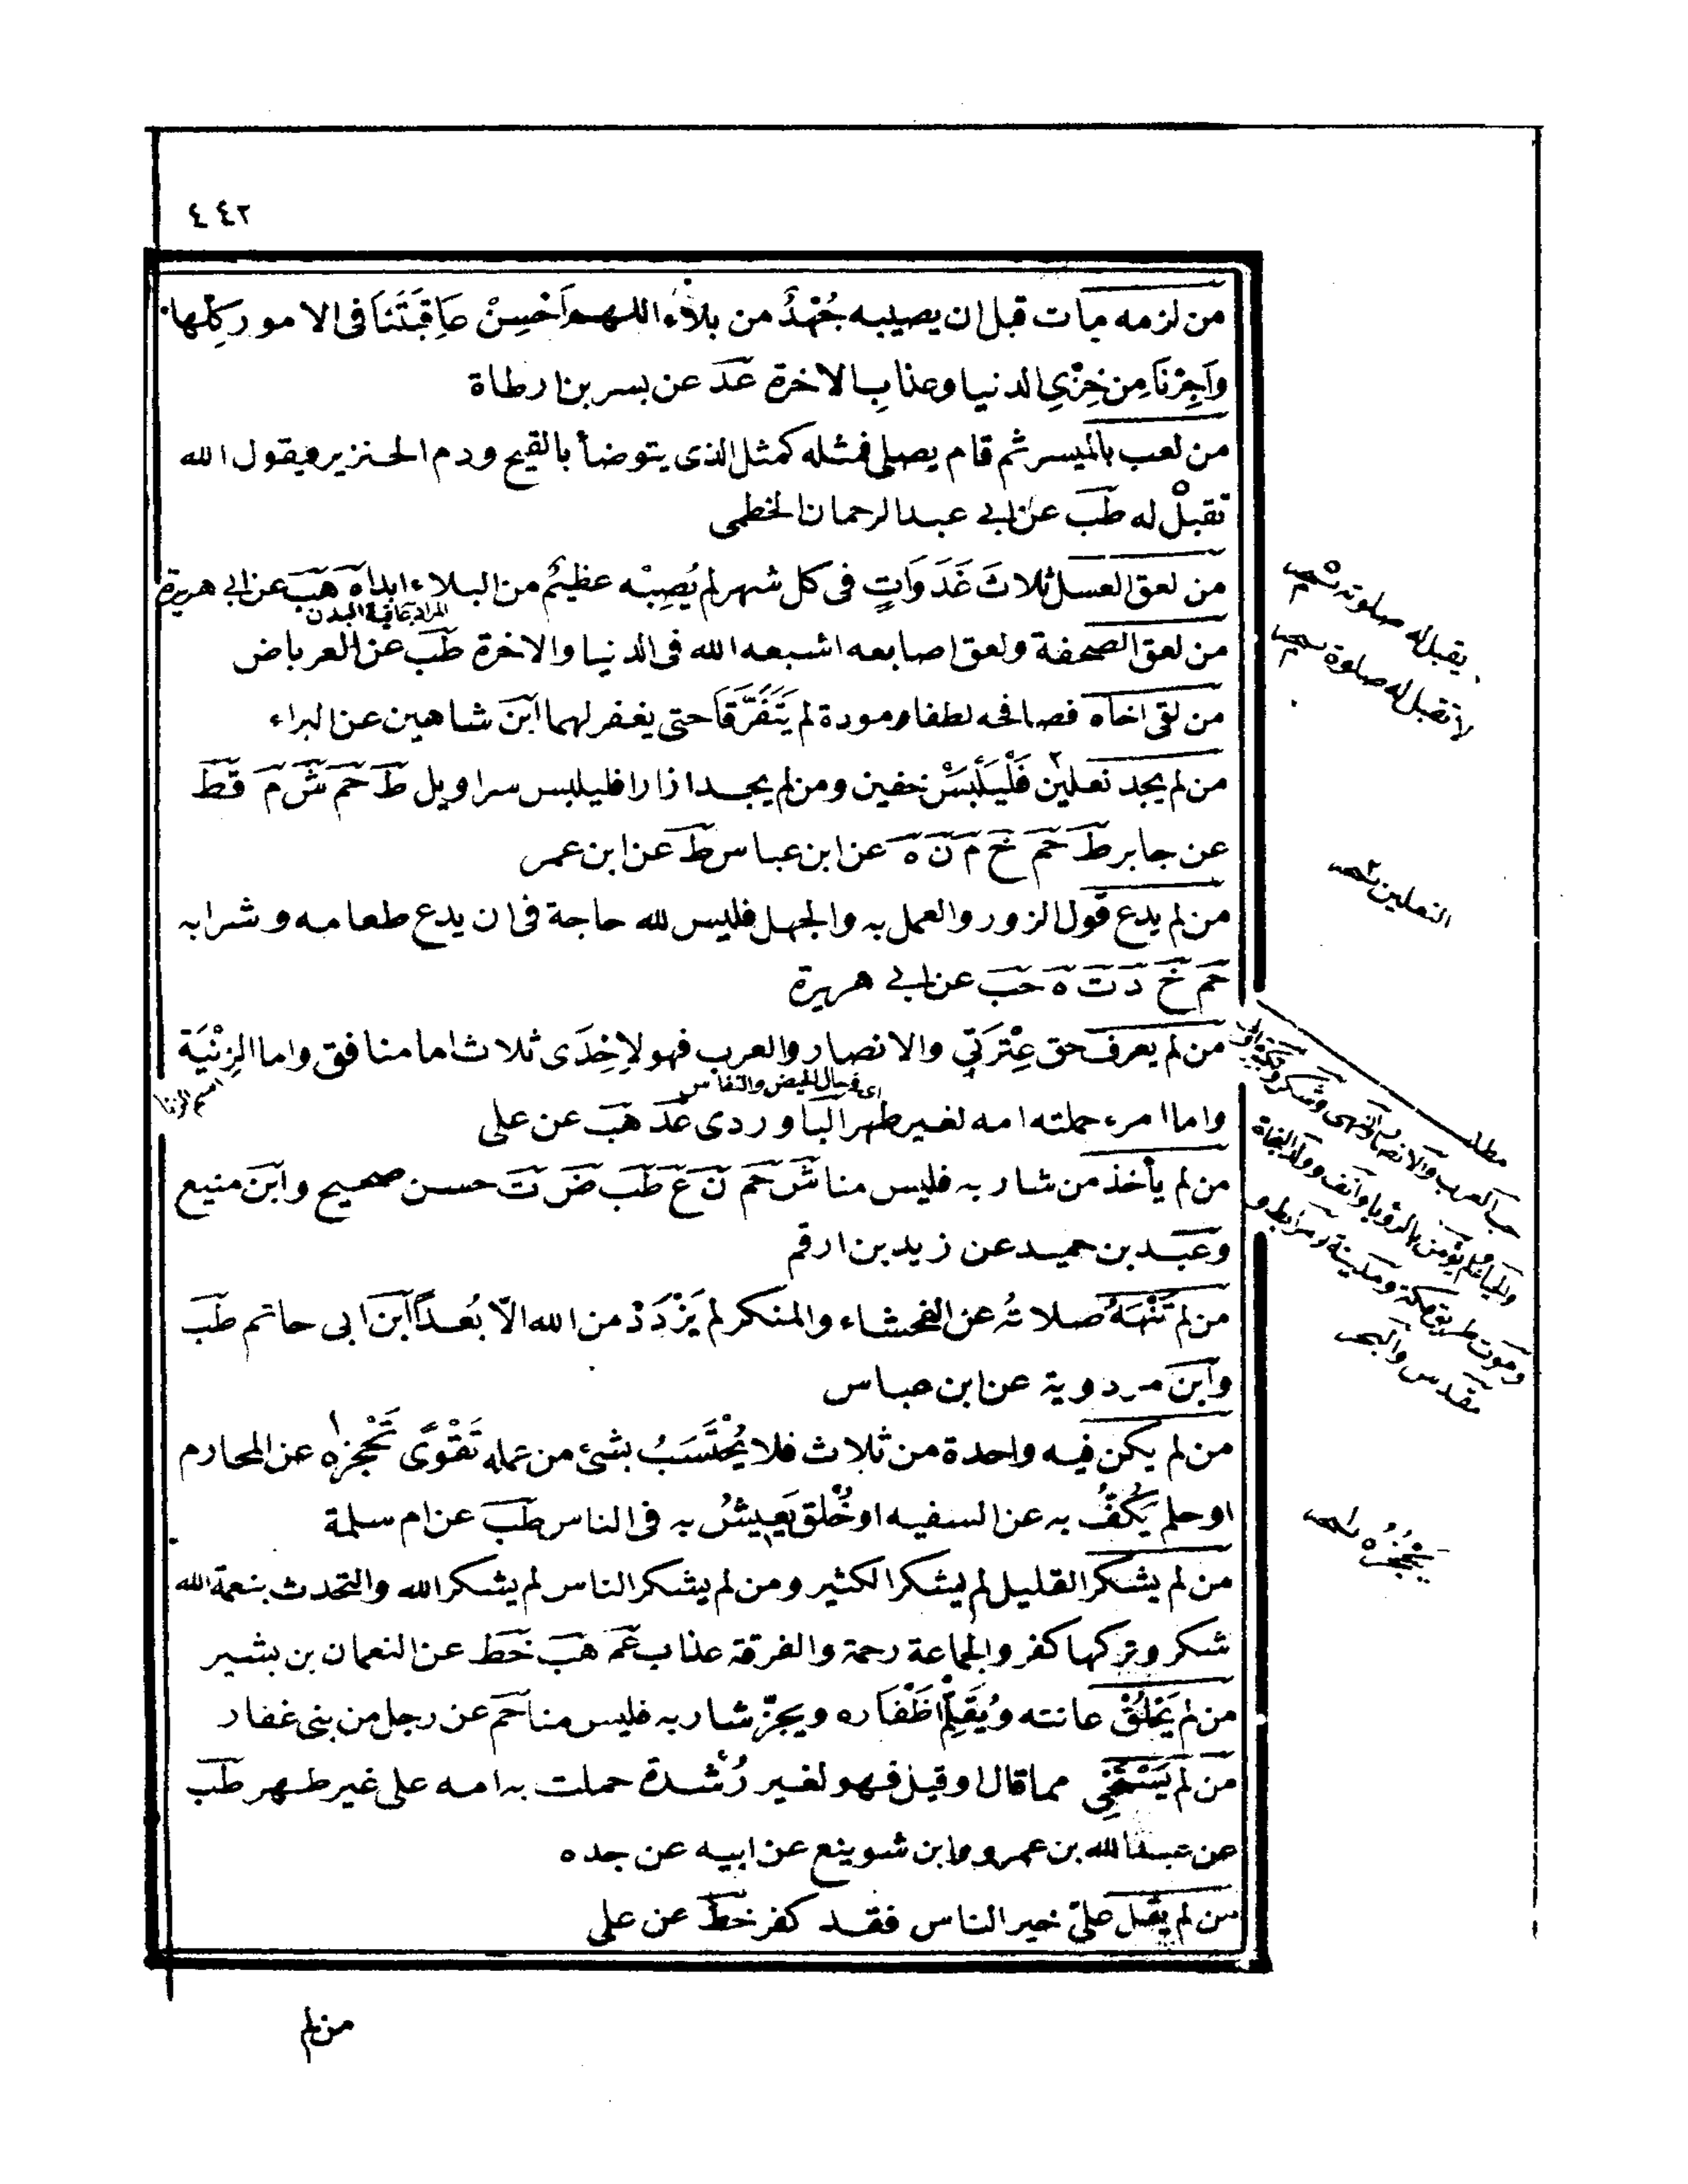 ٤٤٢
من لزمه مات قبل ان يصيبه جُهْدٌ من بلاء اللهم اَحْسِنْ عَاقِبَتَنَا فى الامور كلِّها
وَاَجِرْنَا مِن خِزْىِ الدنيا وعذابِ الاخرة عد عن بسر بن ارطاة
من لعب بالميسر ثم قام يصلى فمثله كمثل الذى يتوضأ بالقيح ودم الخنزير فيقول الله
تقبل له طب عن ابى عبد الرحمان الخطمى
من لعق العسل ثلاثَ غَدَوَاتٍ فى كل شهر لم يُصِبْه عظيمٌ من البلاء ابدا ه هب عن ابى هريرة
المراد عافية البدن
من لعق الصحفة ولعق اصابعه اشبعه الله فى الدنيا والاخرة طب عن العرباض
من لقى اخاه فصافحه لطفا ومودة لم يَتَفَرَّقَا حتى يغفر لهما ابن شاهين عن البراء
من لم يجد نعلين فَلْيَلْبَسْ خفين ومن لم يجد ازارا فليلبس سراويل ط حم ش م قط
عن جابر ط حم خ م ن ه عن ابن عباس ط عن ابن عمر
من لم يدع قول الزور والعمل به والجهل فليس لله حاجة فى ان يدع طعامه وشرابه
حم خ د ت ه حب عن ابى هريرة
من لم يعرف حق عِتْرَتِي والانصار والعرب فهو لاِحْدَى ثلاث اما منافق واما الزِنْيَة
اى فى حال الحيض والنفاس
واما امرء حملته امه لغير طهر البا وردى عد هب عن على
من لم يأخذ من شاربه فليس منا ش حم ن ع طب ض ت حسن صحيح وابن منيع
وعبد بن حميد عن زيد بن ارقم
من لم تَنْهَهُ صلاتُه عن الفحشاء والمنكر لم يَزْدَدْ من الله الاّ بُعداً ابن ابى حاتم طب
وابن مردوية عن ابن عباس
من لم يكن فيه واحدة من ثلاث فلا يُحْتَسَبُ بشئ من عمله تَقْوًى تَحْجزه عن المحارم
او حلم يَكُفُّ به عن السفيه او خُلق يَعِيشُ به فى الناس طب عن ام سلمة
من لم يشكر القليل لم يشكر الكثير ومن لم يشكر الناس لم يشكر الله والتحدث بنعمة الله
شكر وتركها كفر والجماعة رحمة والفرقة عذاب عم هب خط عن النعمان بن بشير
من لم يَحْلِقْ عانته ويُقَلِّمْ اَظْفَاره ويجزّ شاربه فليس منا حم عن رجل من بنى غفار
من لم يَسْتَحْىِ مما قال او قيل فهو لغير رُشْدة حملت به امه على غير طهر طب
عن عبد الله بن عمرو وما بن شويفع عن ابيه عن جده
من لم يقل علىّ خير الناس فقد كفر خط عن على
من لم
يقبل له صلوته نسخه
لا تقبل له صلوة نسخه
النعلين نسخه
مطلب
حب العرب والانصار
مقدس والبحر
يحجزه نسخه